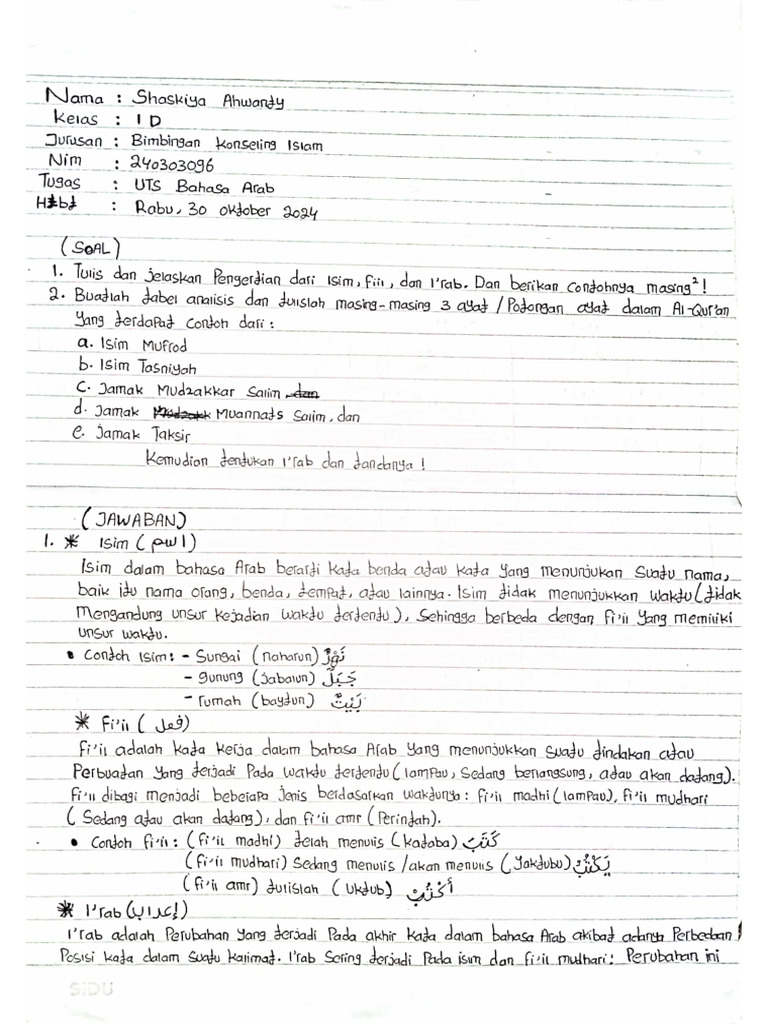 Nama : Shaskiya Ahwandy
Kelas : I D
Jurusan : Bimbingan Konseling Islam
Nim : 240303096
Tugas : UTS Bahasa Arab
H+bt : Rabu, 30 Oktober 2024
(SOAL)
1. Tulis dan jelaskan Pengertian dari Isim, fiil, dan I'rab. Dan berikan contohnya masing²!
2. Buatlah tabel analisis dan tulislah masing-masing 3 ayat / Potongan ayat dalam Al-Qur'an
Yang terdapat contoh dari :
a. Isim Mufrod
b. Isim Tasniyah
c. Jamak Mudzakkar Salim dan
d. Jamak Muannats Salim, dan
e. Jamak Taksir
Kemudian tentukan I'rab dan tandanya !
(JAWABAN)
1. * Isim (اسم)
Isim dalam bahasa Arab berarti kata benda atau kata yang menunjukan suatu nama,
baik itu nama orang, benda, tempat, atau lainnya. Isim tidak menunjukkan waktu (tidak
Mengandung unsur kejadian waktu tertentu), sehingga berbeda dengan fi'il yang memiliki
unsur waktu.
• Contoh Isim : - Sungai (naharun) نَهَرٌ
- gunung (jabalun) جَبَلٌ
- rumah (baytun) بَيْتٌ
* Fi'il (فعل)
Fi'il adalah kata kerja dalam bahasa Arab yang menunjukkan suatu tindakan atau
Perbuatan yang terjadi Pada waktu tertentu (lampau, Sedang berlangsung, atau akan datang).
Fi'il dibagi menjadi beberapa jenis berdasarkan waktunya : fi'il madhi (lampau), fi'il mudhari
(Sedang atau akan datang), dan fi'il amr (Perintah).
• Contoh fi'il : (fi'il madhi) telah menulis (kataba) كَتَبَ
(fi'il mudhari) Sedang menulis / akan menulis (Yaktubu) يَكْتُبُ
(fi'il amr) tulislah (Uktub) أُكْتُبْ
* I'rab (إعداب)
I'rab adalah Perubahan yang terjadi Pada akhir kata dalam bahasa Arab akibat adanya Perbedaan
Posisi kata dalam suatu kalimat. I'rab Sering terjadi Pada isim dan fi'il mudhari: Perubahan ini
SiDU